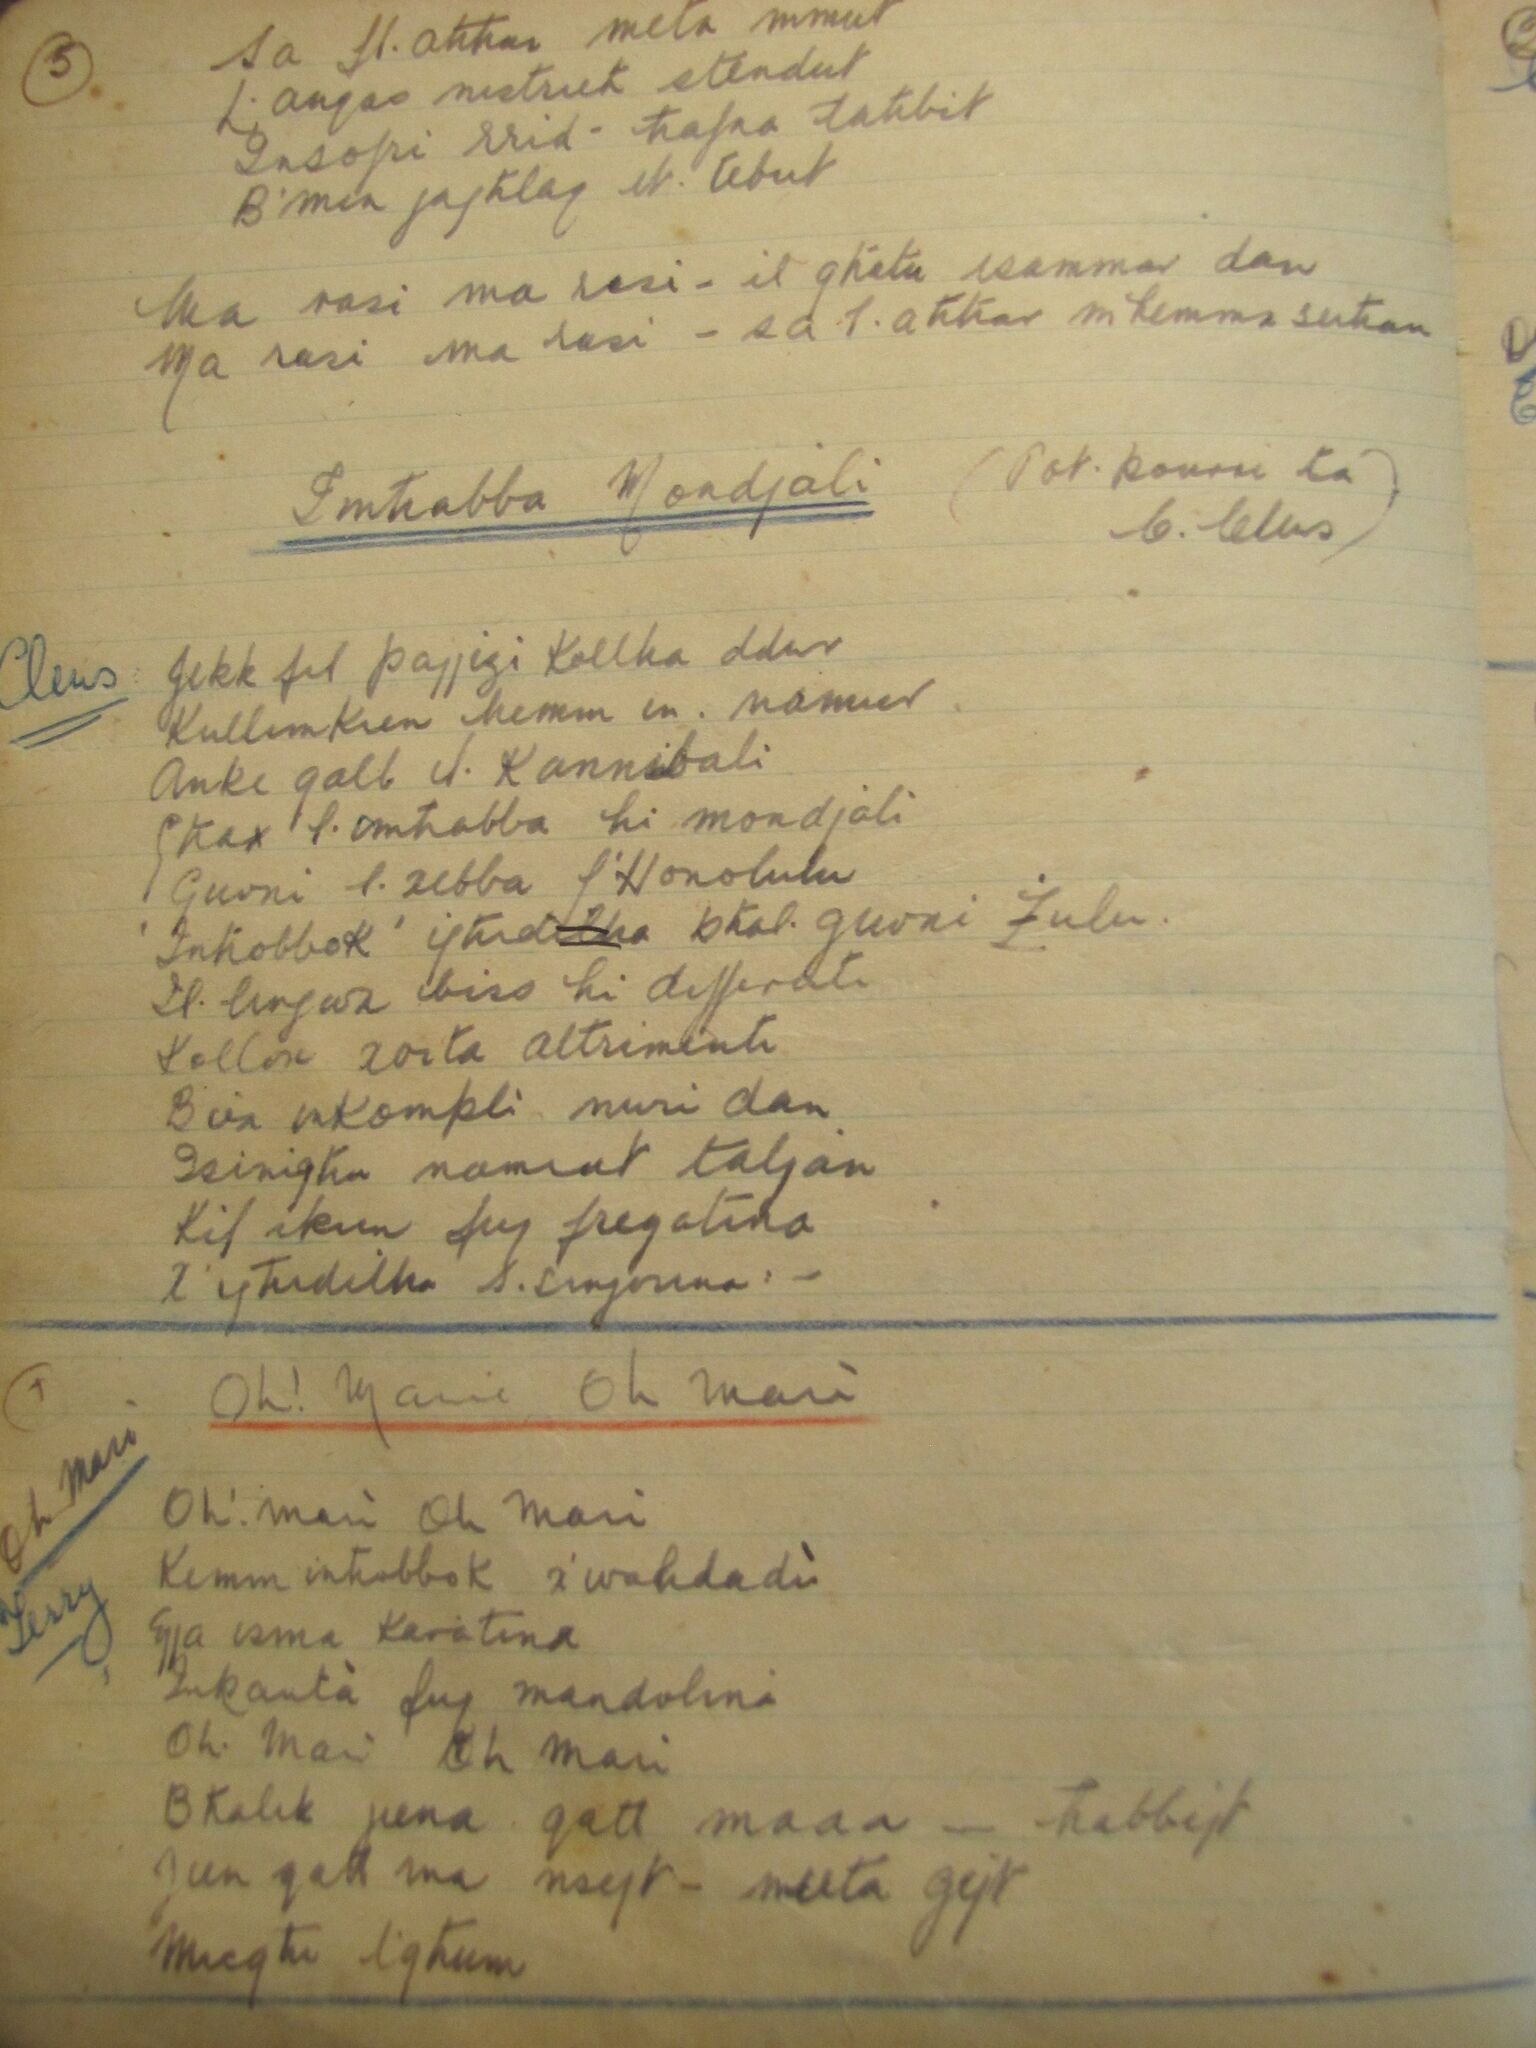 5
Sa fl. aħħar meta mmut
L. angas mistrieħ stendut
Insofri rrid - ħafna taħbit
B'men jagħlaq it. tebut
Ma rasi ma rasi - il għatu isammar dan
Ma rasi ma rasi - sa l. aħħar m'hemmx sultan
Imħabba Mondjali (Pot. pourri ta
C. Clews)
Clews: Jekk fil pajjizi Kollha ddur
Kullimkien hemm in. namur
Anke qalb il. Kannibali
Għax l. imħabba hi mondjali
Guvni l. xebba f'Honolulu
'Inħobbok' igħidilha bħal. guvni Żulu.
Il. lingwa biss hi differenti
Kollox xorta altrimenti
Biex inkompli nuri dan
Isimigħu namrat taljan
Kif ikun fuq fregatina
X'igħidilha s. sinjorina: -
1
Oh! Marie Oh Mari
Oh Mari
Terry
Oh! Mari Oh Mari
Kemm inħobbok x'waħdadi
Ejja isma Kavatina
Inkanta fuq mandolina
Oh. Mari Oh Mari
Bħalek jiena qatt maaa - ħabbejt
Jien qatt ma nsejt - meta gejt
Miegħi l'għum